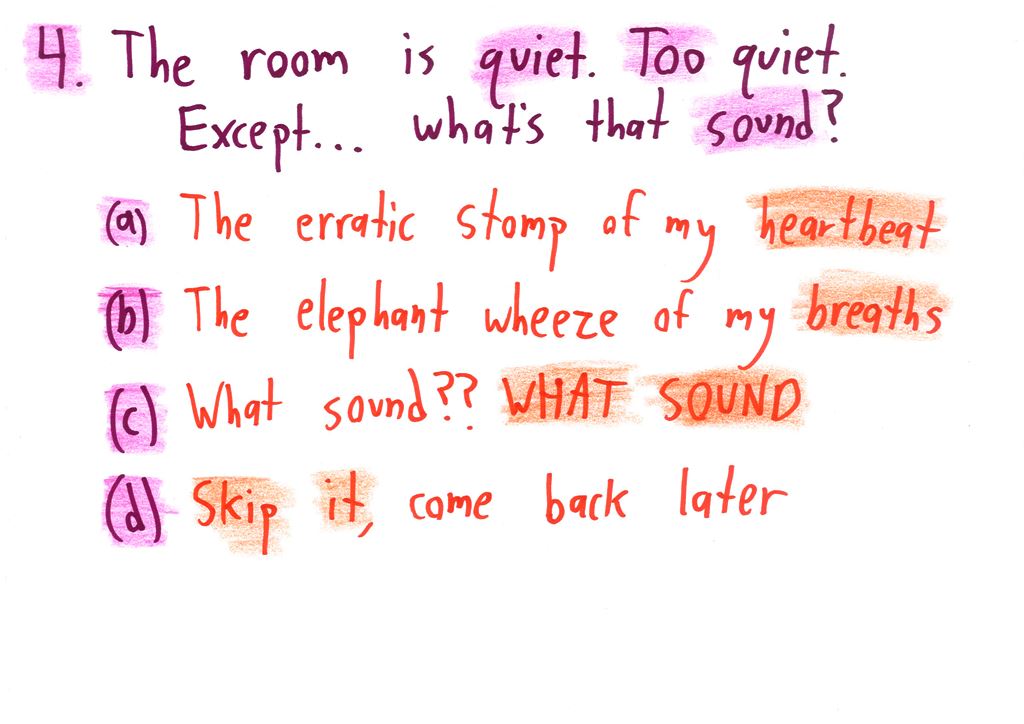 4. The room is quiet. Too quiet.
Except... what's that sound?
(a) The erratic stomp of my heartbeat
(b) The elephant wheeze of my breaths
(c) What sound?? WHAT SOUND
(d) Skip it, come back later